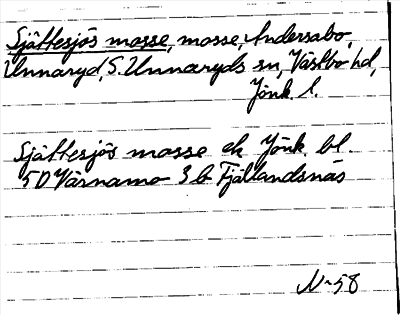 Sjättesjös mosse, mosse, Andersabo,
Unnaryd, S. Unnaryds sn, Västbo hd,
Jönk. l.
Sjättesjös mosse ek Jönk. bl.
5D Värnamo 3b Fjällandsnäs
N-58